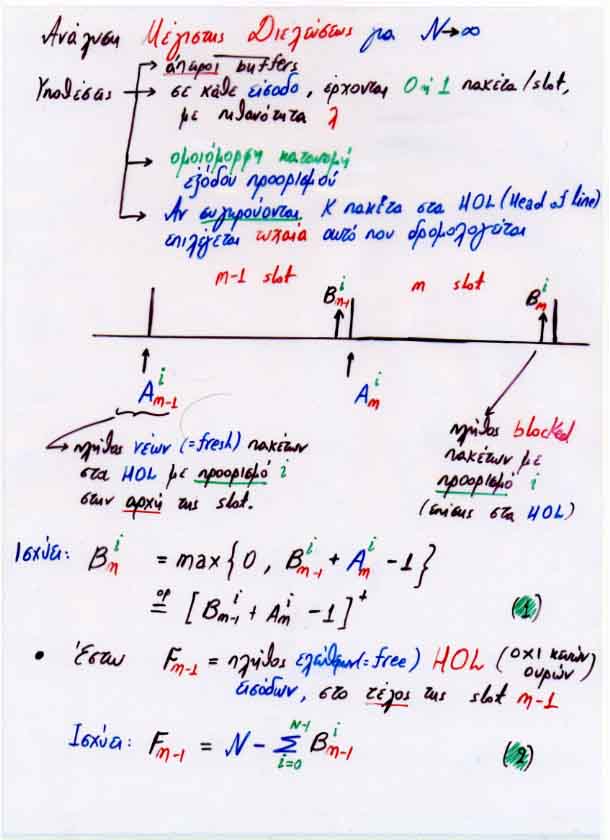 Ανάλυση Μέγιστης Διελεύσεως για N→∞
άπειροι buffers
Υποθέσεις → σε κάθε είσοδο, έρχονται 0 ή 1 πακέτα/slot,
με πιθανότητα λ
ομοιόμορφη κατανομή
εξόδου προορισμού
Αν συγκρούονται K πακέτα στα HOL (Head of line)
επιλέγεται τυχαία αυτό που δρομολογείται
m-1 slot m slot
B^i_{m-1} B^i_m
A^i_{m-1} A^i_m
πλήθος νέων (=fresh) πακέτων
στα HOL με προορισμό i
στην αρχή της slot.
πλήθος blocked
πακέτων με
προορισμό i
(επίσης στα HOL)
Ισχύει: B^i_m = max{0, B^i_{m-1} + A^i_m - 1}
≝ [B^i_{m-1} + A^i_m - 1]^+ (1)
• Έστω F_{m-1} = πλήθος ελεύθερων (=free) HOL (όχι κενών ουρών)
εισόδων, στο τέλος της slot m-1
Ισχύει: F_{m-1} = N - Σ_{i=0}^{N-1} B^i_{m-1} (2)